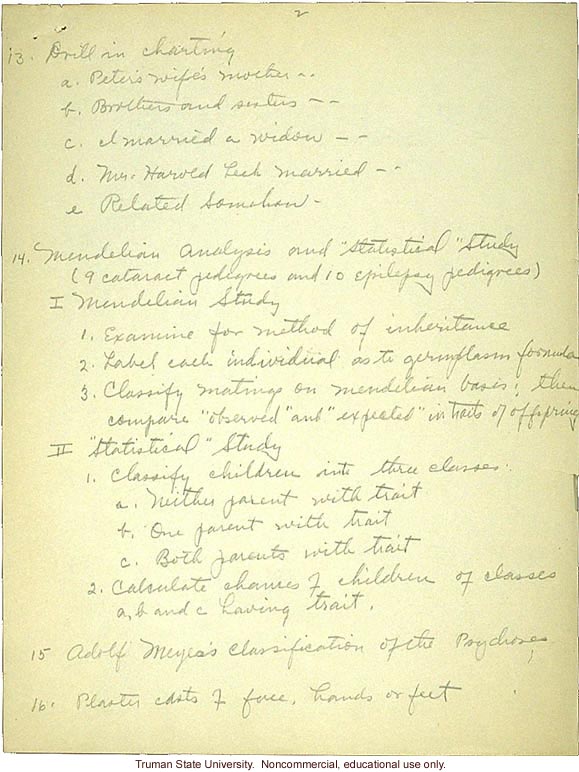 2
13. Drill in charting
a. Peter's wife's mother --
b. Brothers and sisters --
c. I married a widow --
d. Mrs. Harold Leek married --
e Related Somehow -
14. Mendelian Analysis and "Statistical" Study
(9 cataract pedigrees and 10 epilepsy pedigrees)
I Mendelian Study
1. Examine for method of inheritance
2. Label each individual as to germplasm formula
3. Classify matings on mendelian basis; then
compare "observed" and "expected" in traits of offspring
II "Statistical" Study
1. Classify children into three classes:
a. Neither parent with trait
b. One parent with trait
c. Both parents with trait
2. Calculate chances of children of classes
a, b and c having trait.
15 Adolf Meyer's classification of the Psychoses
16. Plaster casts of face, hands or feet
Truman State University. Noncommercial, educational use only.